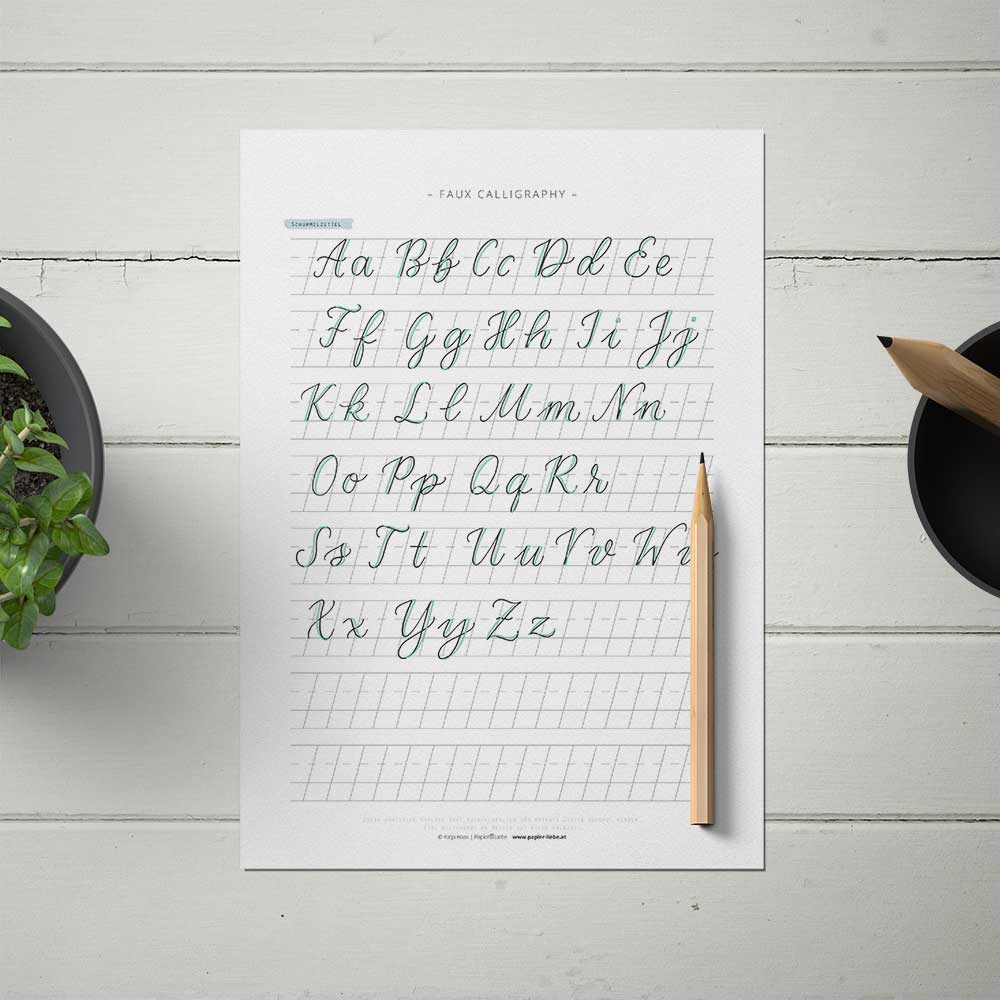 – FAUX CALLIGRAPHY –
SCHUMMELZETTEL
Aa Bb Cc Dd Ee
Ff Gg Hh Ii Jj
Kk Ll Mm Nn
Oo Pp Qq Rr
Ss Tt Uu Vv W
Xx Yy Zz
© Katja Haas | PapierLiebe www.papier-liebe.at